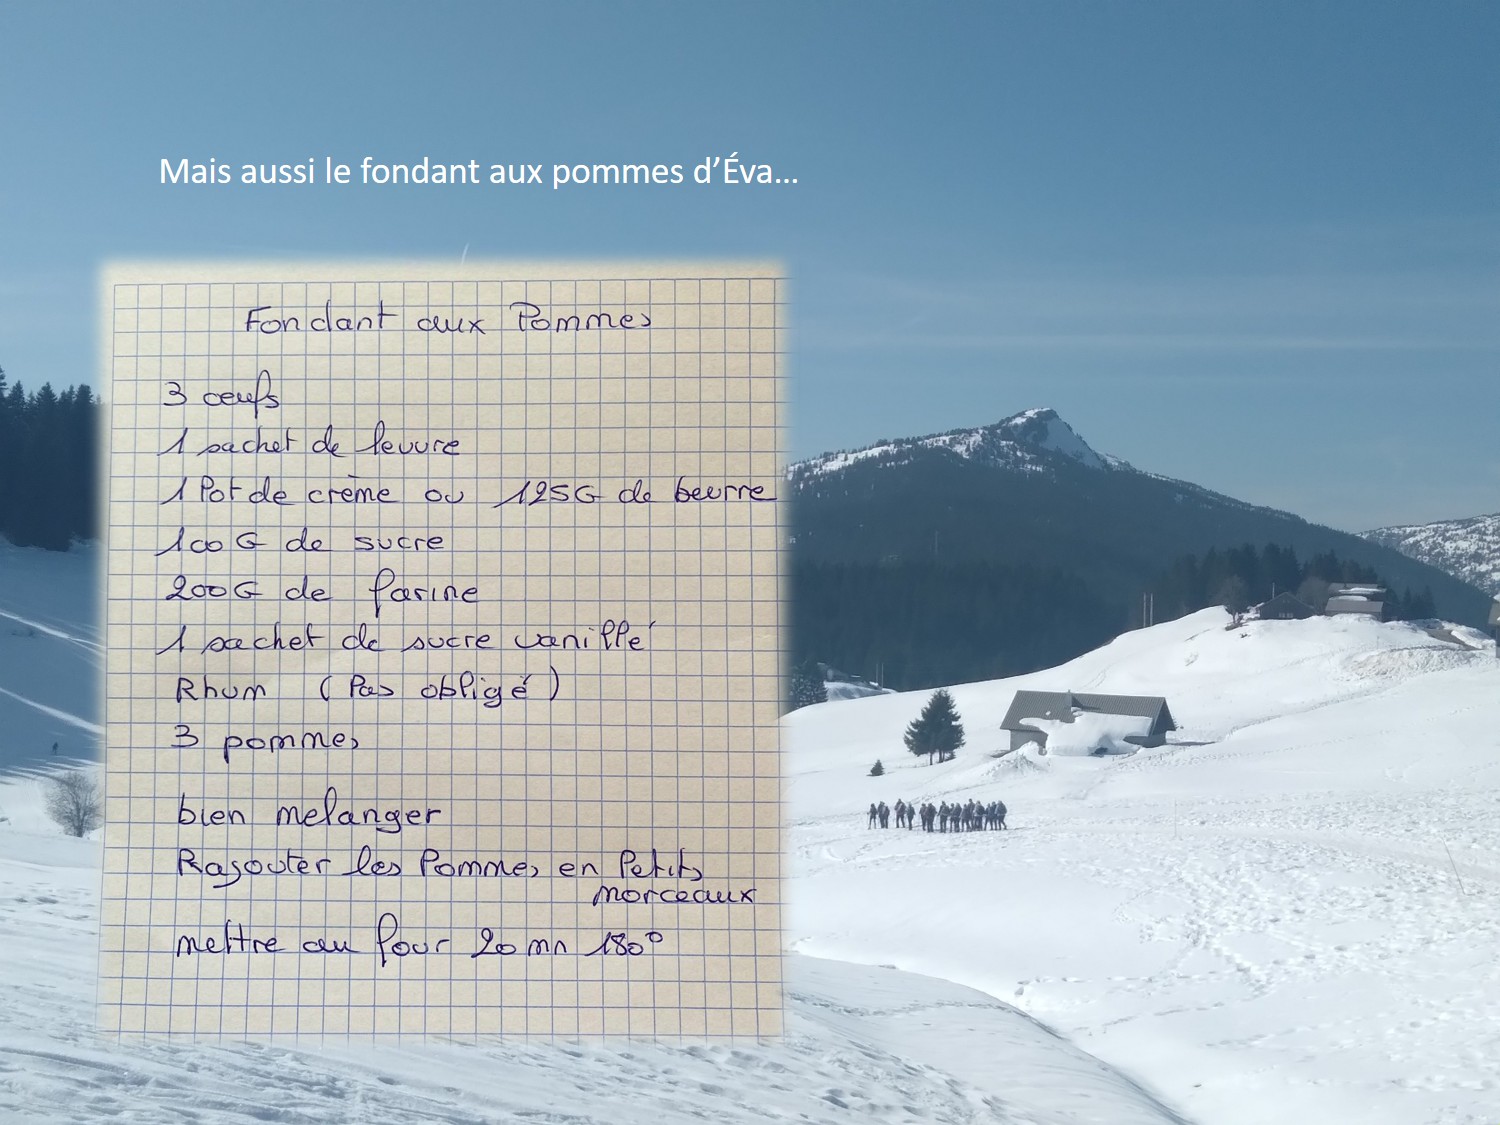 Mais aussi le fondant aux pommes d’Éva...
Fondant aux Pommes
3 œufs
1 sachet de levure
1 Pot de crème ou 125G de beurre
100G de sucre
200G de farine
1 sachet de sucre vanillé
Rhum (Pas obligé)
3 pommes
bien melanger
Rajouter les Pommes en Petits
morceaux
mettre au four 20 mn 180°